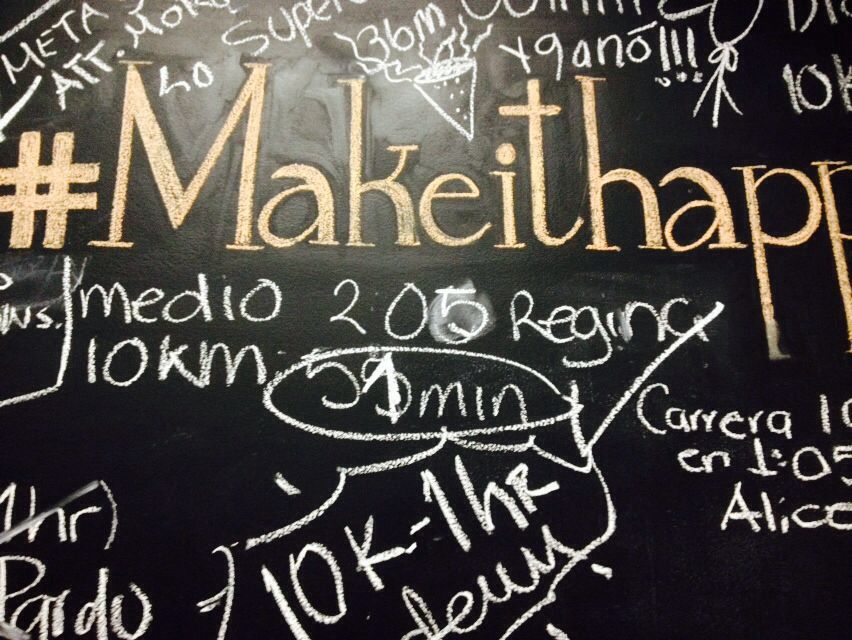 META
ATT. MOKA
LO Super
36m
y ganó!!!
10K
#Makeithapp
medio 2 05 Regina
10KM 51min
Carrera 10
en 1:05
Alice
1hr)
Pardo
10K-1hr